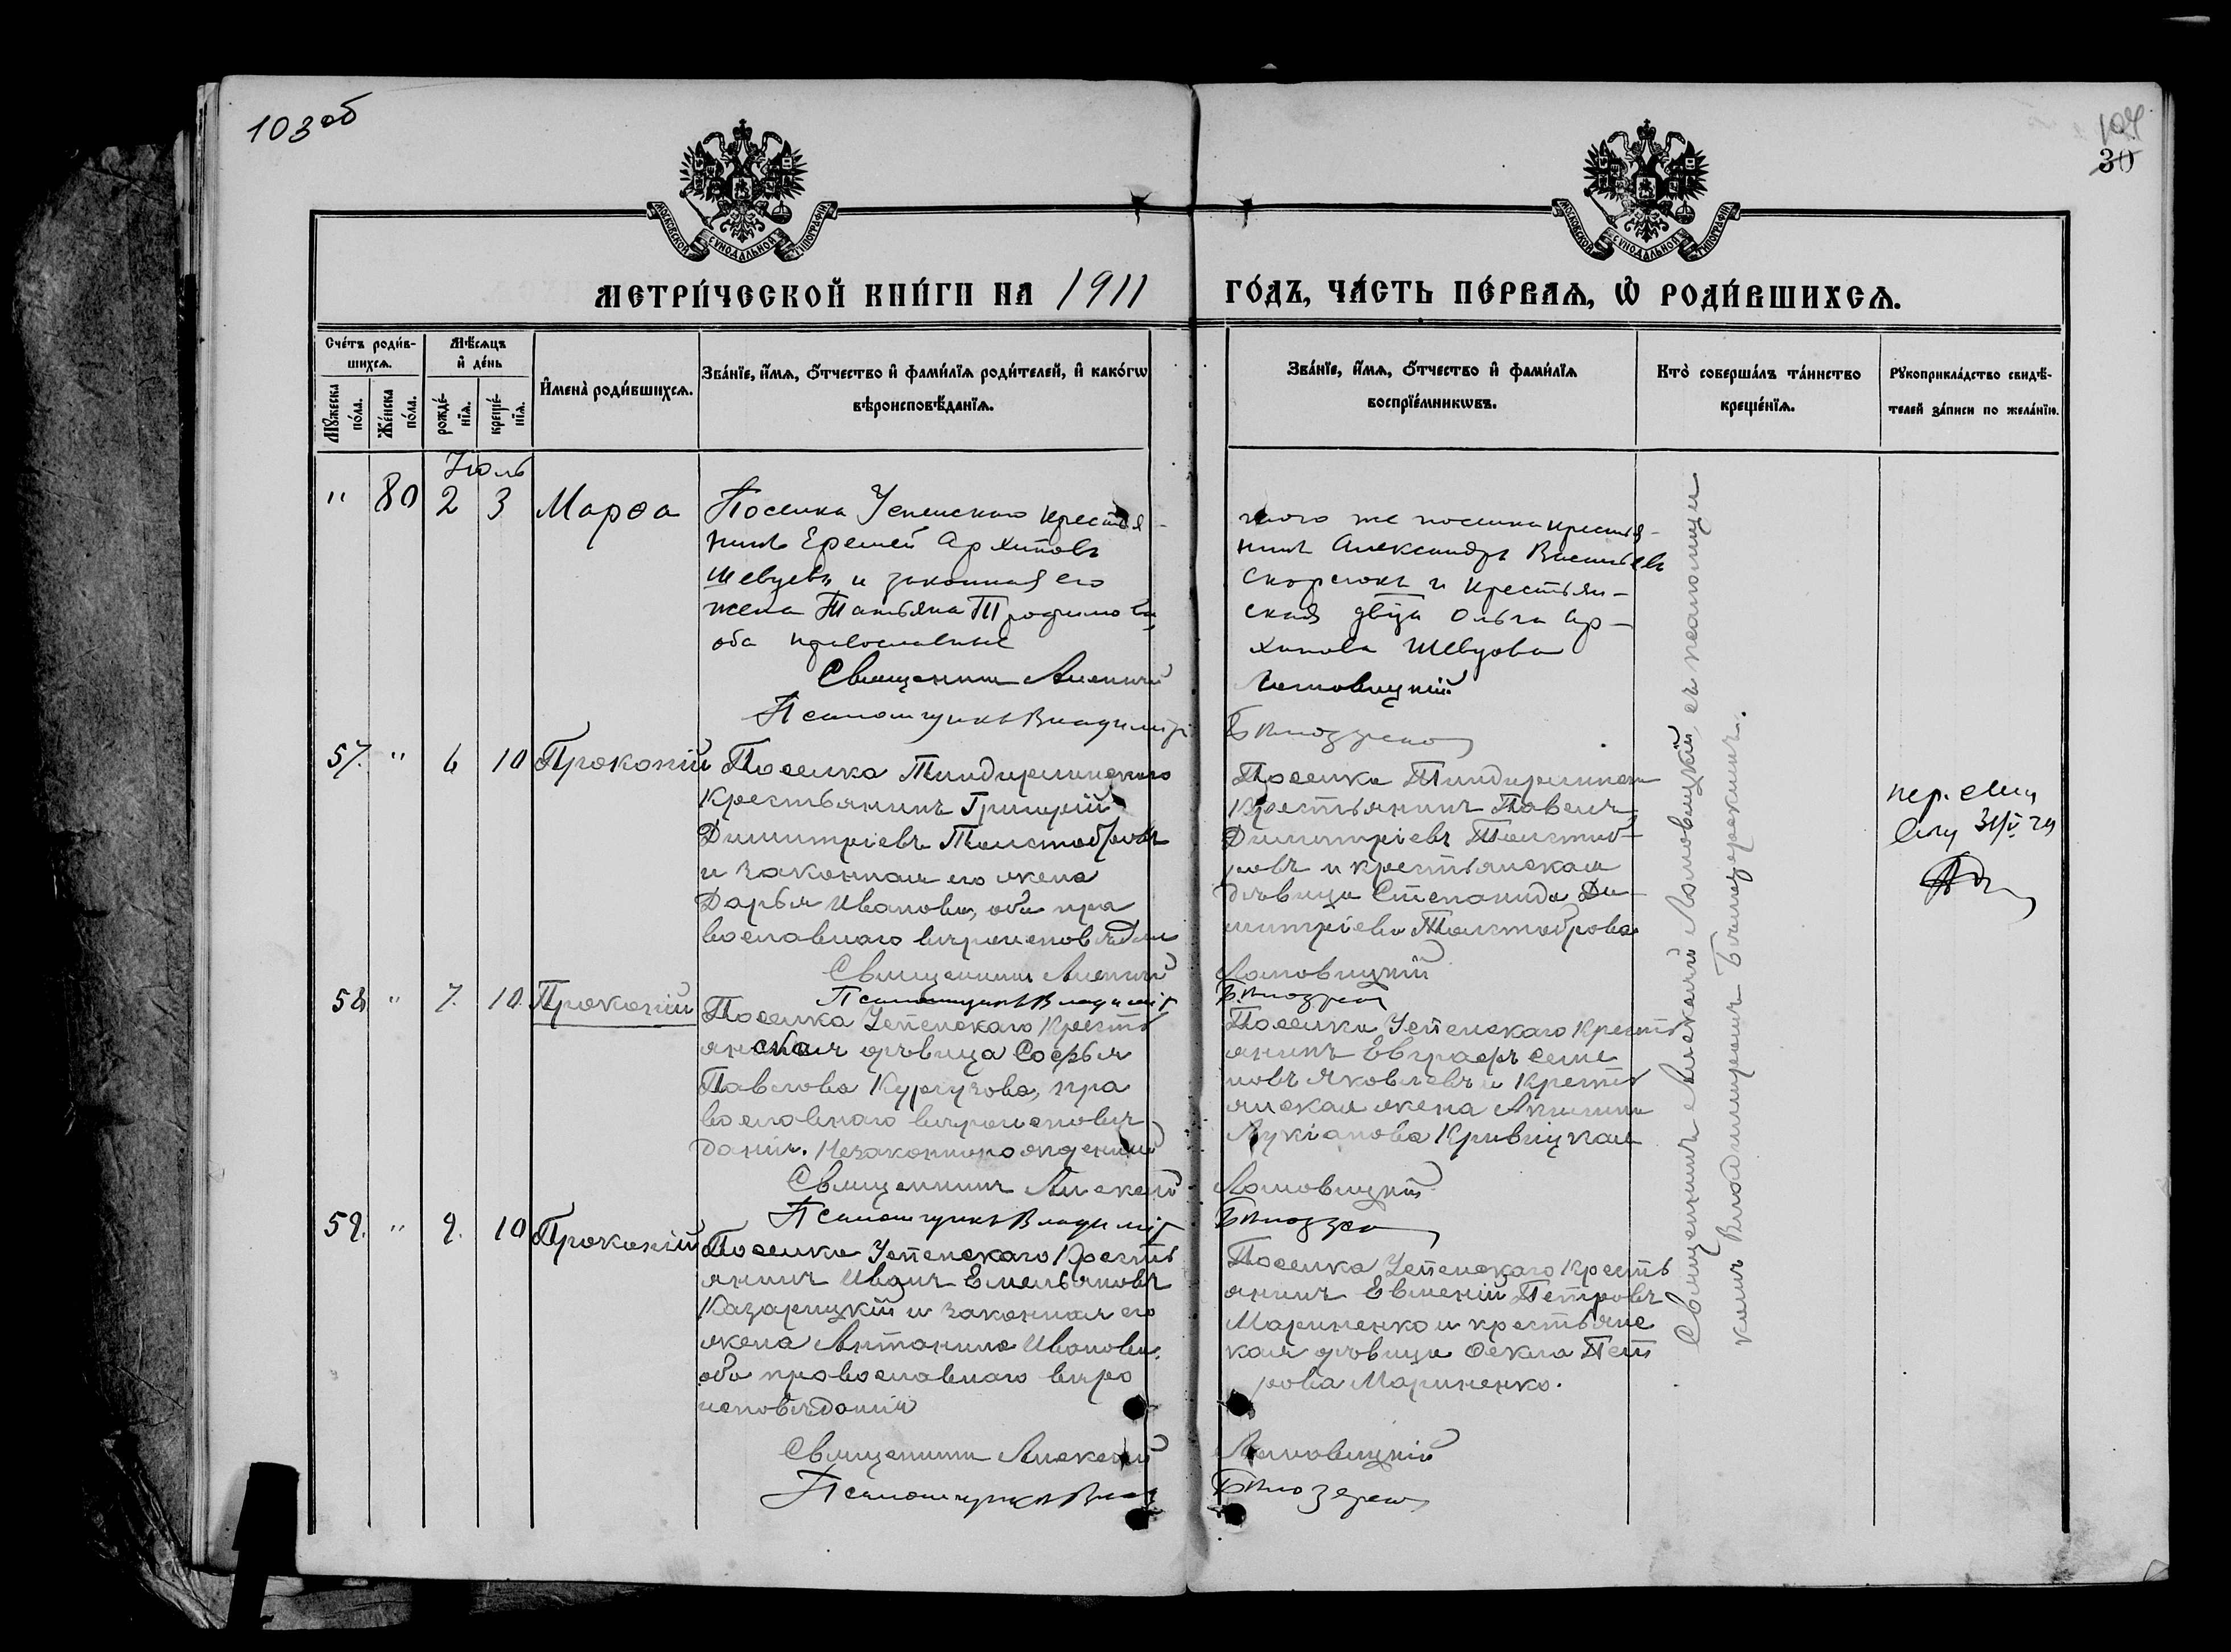 103 об
104
30
МОСКОВСКОЙ СѴНОДАЛЬНОЙ ТИПОГРАФІИ
МОСКОВСКОЙ СѴНОДАЛЬНОЙ ТИПОГРАФІИ
МЕТРИ́ЧЕСКОЙ КНИ́ГИ НА 1911 ГО́ДЪ, ЧА́СТЬ ПЕ́РВАѦ, Ѡ҆ РОДИ́ВШИХСѦ.
Сче́тъ роди́вшихсѧ.
Мꙋ́жеска по́ла.
Же́нска по́ла.
Мѣ́сѧцъ и҆ де́нь
рожде́нїѧ.
креще́нїѧ.
И҆мена̀ роди́вшихсѧ.
Зва́нїе, и҆́мѧ, ѻ҆́тчество и҆ фами́лїѧ роди́телей, и҆ како́гѡ
вѣроисповѣ́данїѧ.
Зва́нїе, и҆́мѧ, ѻ҆́тчество и҆ фами́лїѧ
воспрїе́мникѡвъ.
Кто̀ соверша́лъ та́инство
креще́нїѧ.
Рꙋкоприкла́дство свидѣ́-
телей за́писи по жела́нїю.
Іюль
" 80 2 3 Марѳа
Поселка Успенскаго крестья-
нинъ Еремей Архиповъ
Шевцовъ и законная его
жена Татьяна Трофимова,
оба православные
Священникъ Алексій
Псаломщикъ Владиміръ
того же поселка крестья-
нинъ Александръ Васильевъ
и крестьян-
ская двца Ольга Ар-
хипова Шевцова
Ломовицкій
Бѣлозерскій
57. " 6 10 Прокопій
Поселка
Крестьянинъ Григорій
Димитріевъ Толстобровъ
и законная его жена
Дарья Иванова, оба пра
вославнаго вѣроисповѣдан
Священникъ Алексій
Псаломщикъ Владиміръ
Поселка
Крестьянинъ Павелъ
Димитріевъ Толстоб-
ровъ и крестьянская
дѣвица Степанида Ди-
митріева Толстоброва
Ломовицкій
58 " 7. 10. Прокопій
Поселка Успенскаго Кресть
янская дѣвица Софья
Павлова Кургузова, пра
вославнаго вѣроисповѣ
данія. Незаконнорожденный
Священникъ Алексій
Псаломщикъ Владиміръ
Поселка Успенскаго Кресть
янинъ Евграфъ Семе
новъ Яковлевъ и Кресть
янская жена Акилина
Лукіанова Кривицкая
Ломовицкій
59. " 9. 10 Прокопій
Поселка Успенскаго Кресть
янинъ Иванъ Емельяновъ
Казарицкій и законная его
жена Антонина Иванова,
оба православнаго вѣро
исповѣданія
Священникъ Алексій
Псаломщикъ
Поселка Успенскаго Кресть
янинъ Евменій Петровъ
Мариненко и крестьянс
кая дѣвица Ѳекла Пет
рова Мариненко.
Ломовицкій
Священникъ Алексій Ломовицкій, съ псаломщи
комъ Владиміромъ Бѣлозерскимъ.